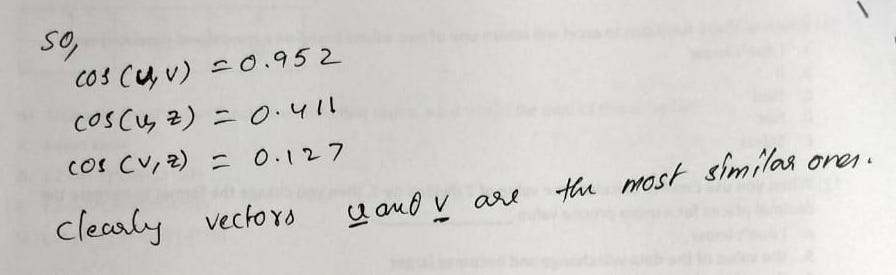 so,
cos (u, v) = 0.952
cos (u, z) = 0.411
cos (v, z) = 0.127
Clearly vectors u and v are the most similar ones.